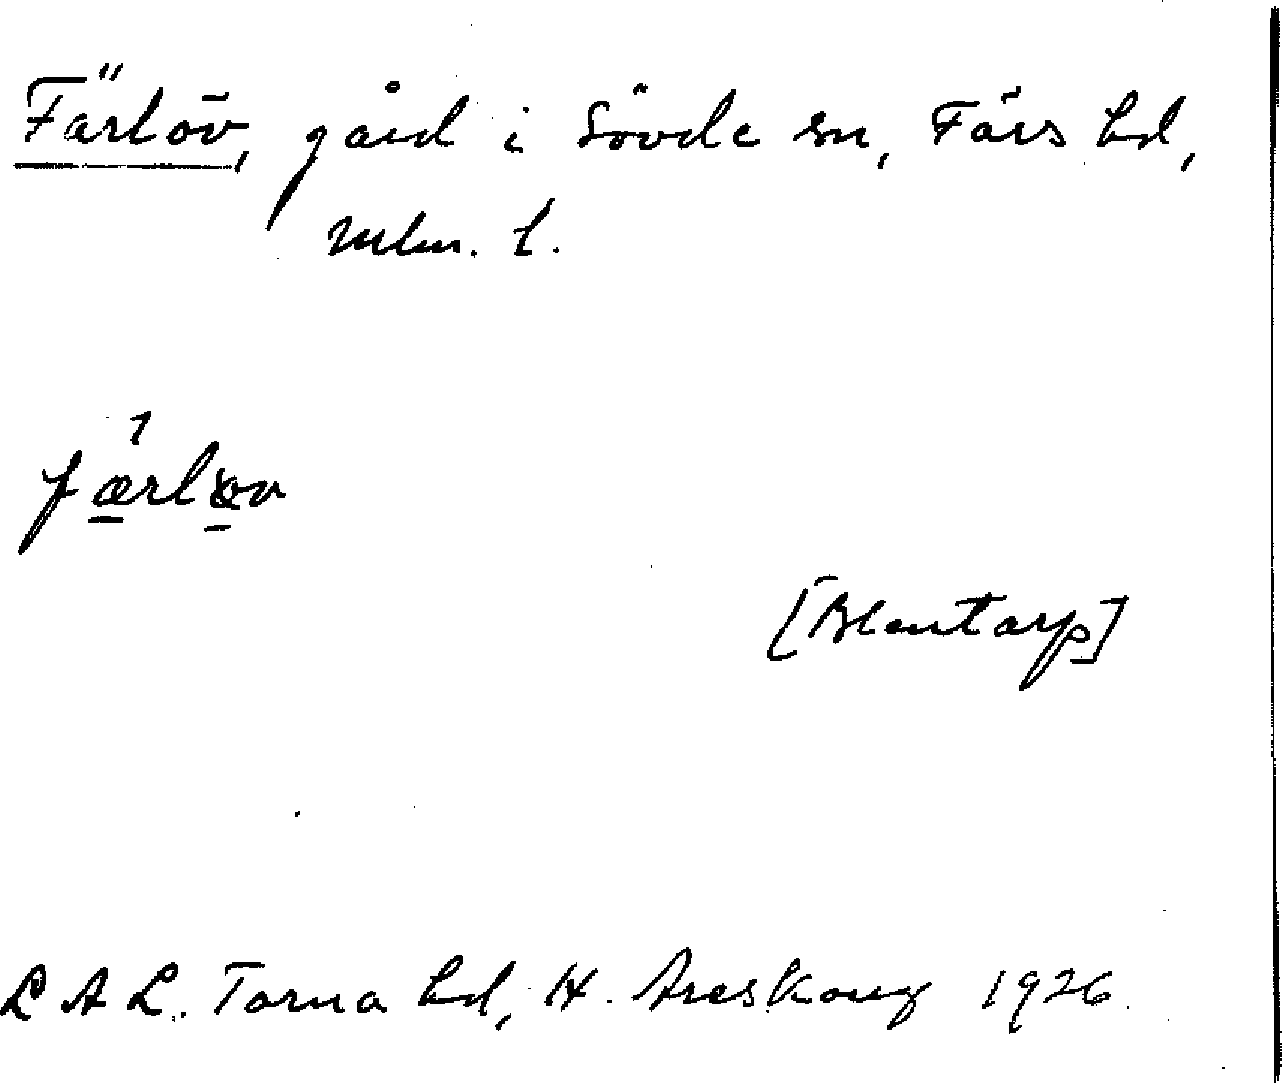 Färlöv, gård i Sövde sn, Färs hd,
Mlm. l.
færløv
[Blentarp]
L A L. Torna hd, H. Areskoug 1926.